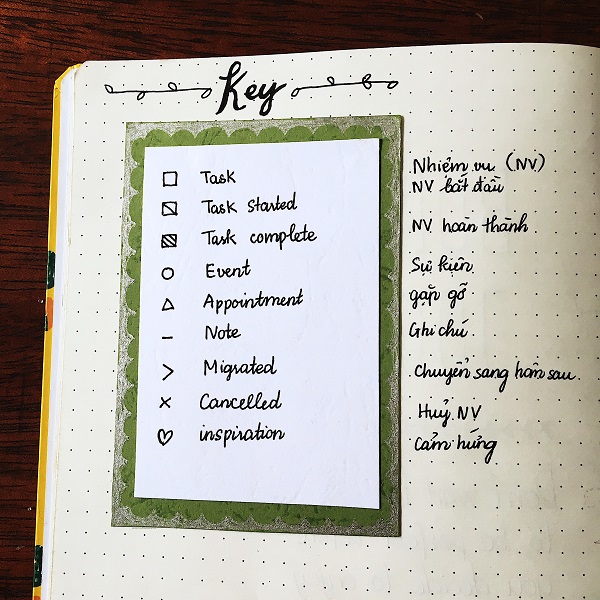 Key
Task
Task Started
Task complete
Event
Appointment
Note
Migrated
Cancelled
inspiration
Nhiệm vụ (NV)
NV bắt đầu
NV hoàn thành
Sự kiện
gặp gỡ
Ghi chú
Chuyển sang hôm sau
Huỷ NV
Cảm hứng